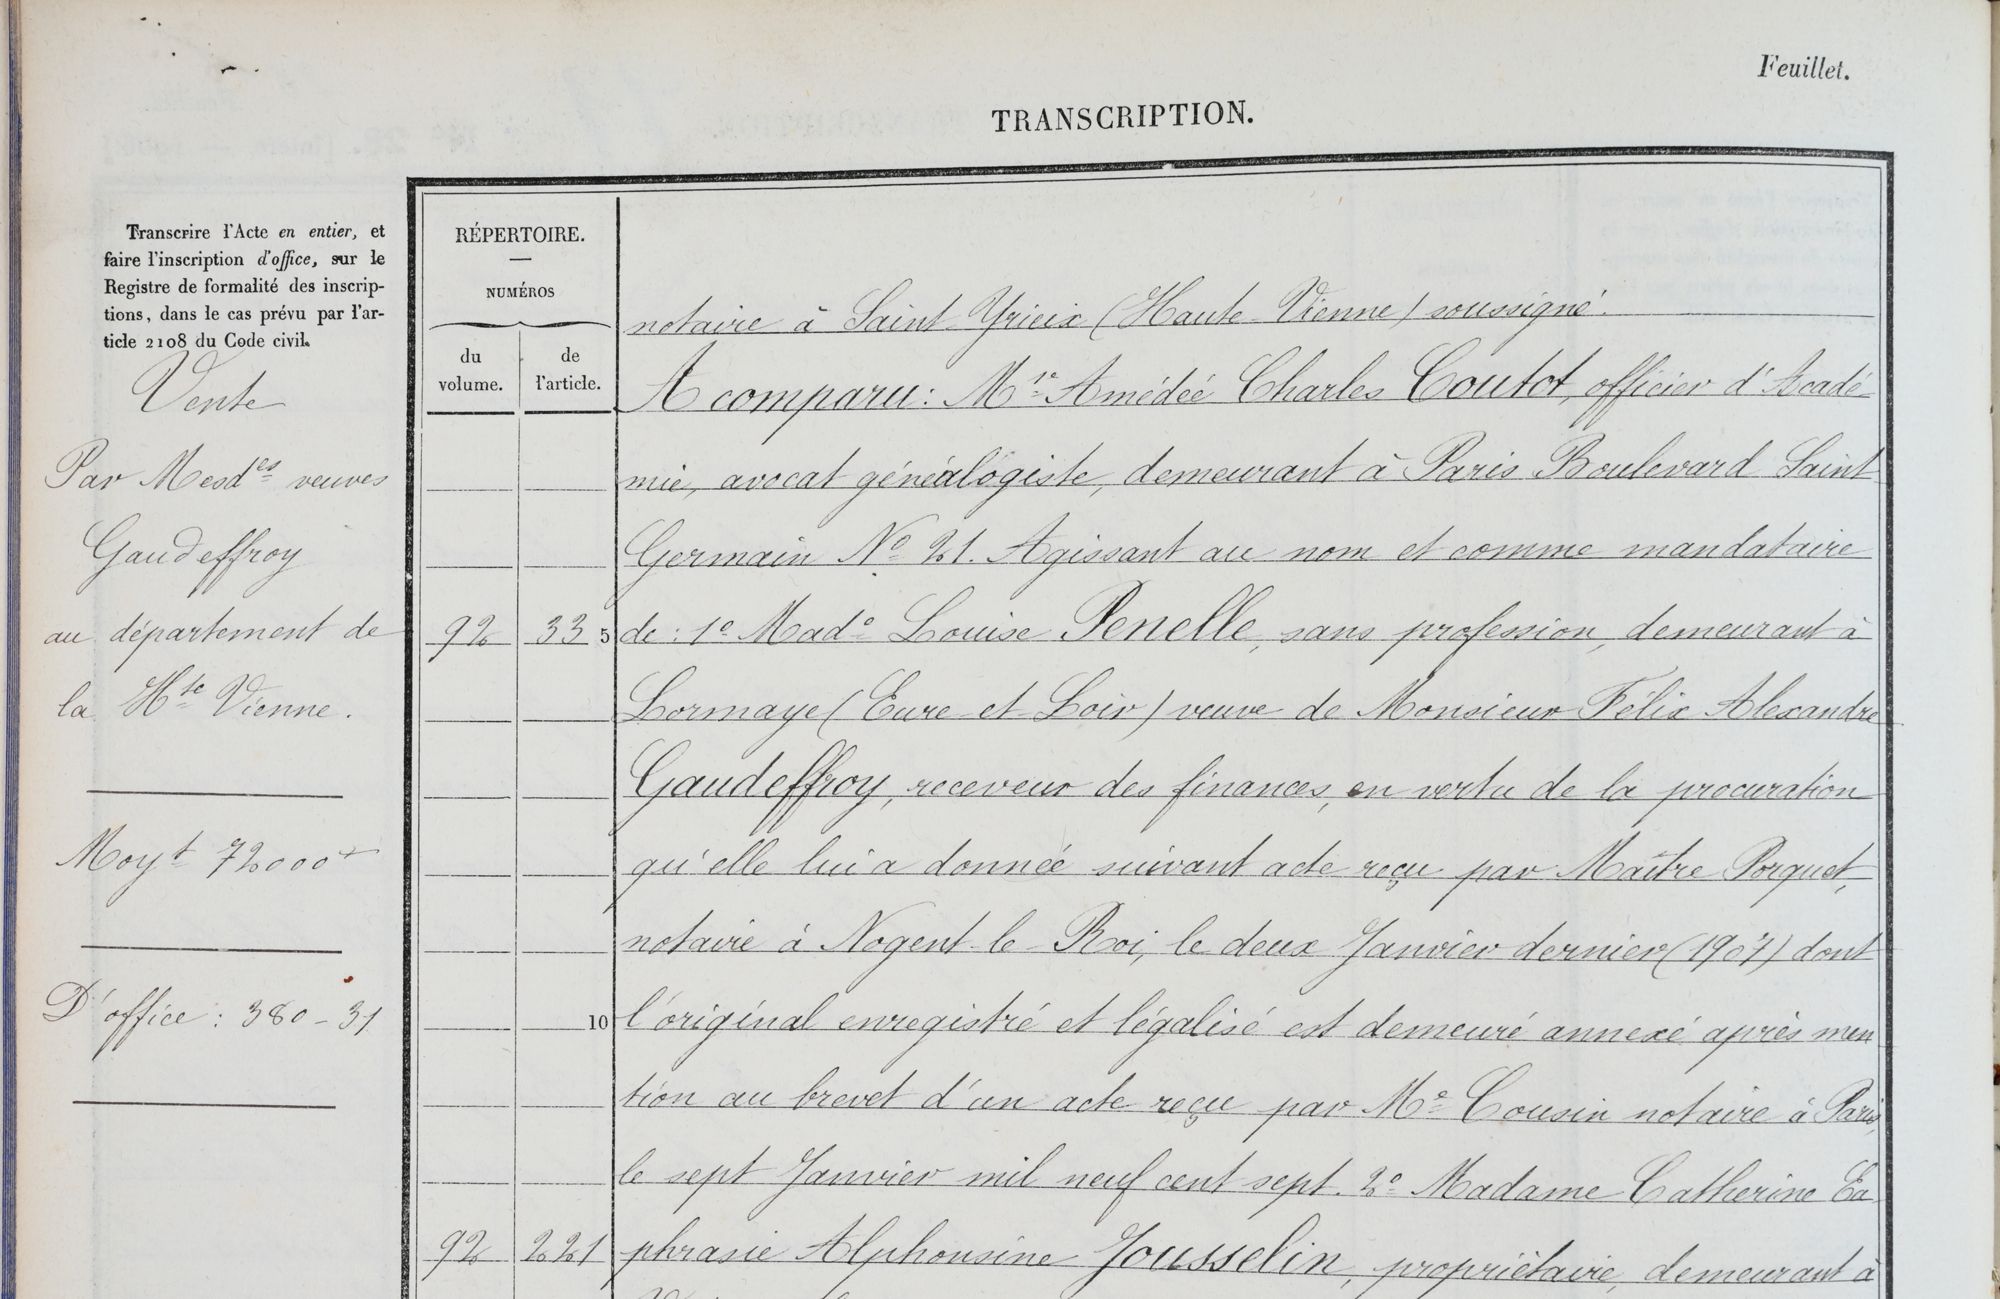 Feuillet.
TRANSCRIPTION.
Transcrire l'Acte en entier, et
faire l'inscription d'office, sur le
Registre de formalité des inscrip-
tions, dans le cas prévu par l'ar-
ticle 2108 du Code civil.
Vente
Par Mesdes veuves
Gaudeffroy
au département de
la Hte Vienne.
Moyt 72000+
D'office : 380-31
RÉPERTOIRE.
NUMÉROS
du volume.
de l'article.
92 33
92 221
notaire à Saint-Yrieix (Haute-Vienne) soussigné.
A comparu : Mre Amédée Charles Coutot, officier d'Acadé-
mie, avocat généalogiste, demeurant à Paris Boulevard Saint
Germain No 21. Agissant au nom et comme mandataire
5 de : 1o Made Louise Penelle, sans profession, demeurant à
Lormaye (Eure-et-Loir) veuve de Monsieur Félix Alexandre
Gaudeffroy, receveur des finances, en vertu de la procuration
qu'elle lui a donnée suivant acte reçu par Maître Porquet,
notaire à Nogent-le-Roi, le deux Janvier dernier (1907) dont
10 l'original enregistré et légalisé est demeuré annexé après men
tion au brevet d'un acte reçu par Me Cousin notaire à Paris,
le sept Janvier mil neuf cent sept. 2o Madame Catherine Eu
phrasie Alphonsine Jousselin, propriétaire, demeurant à